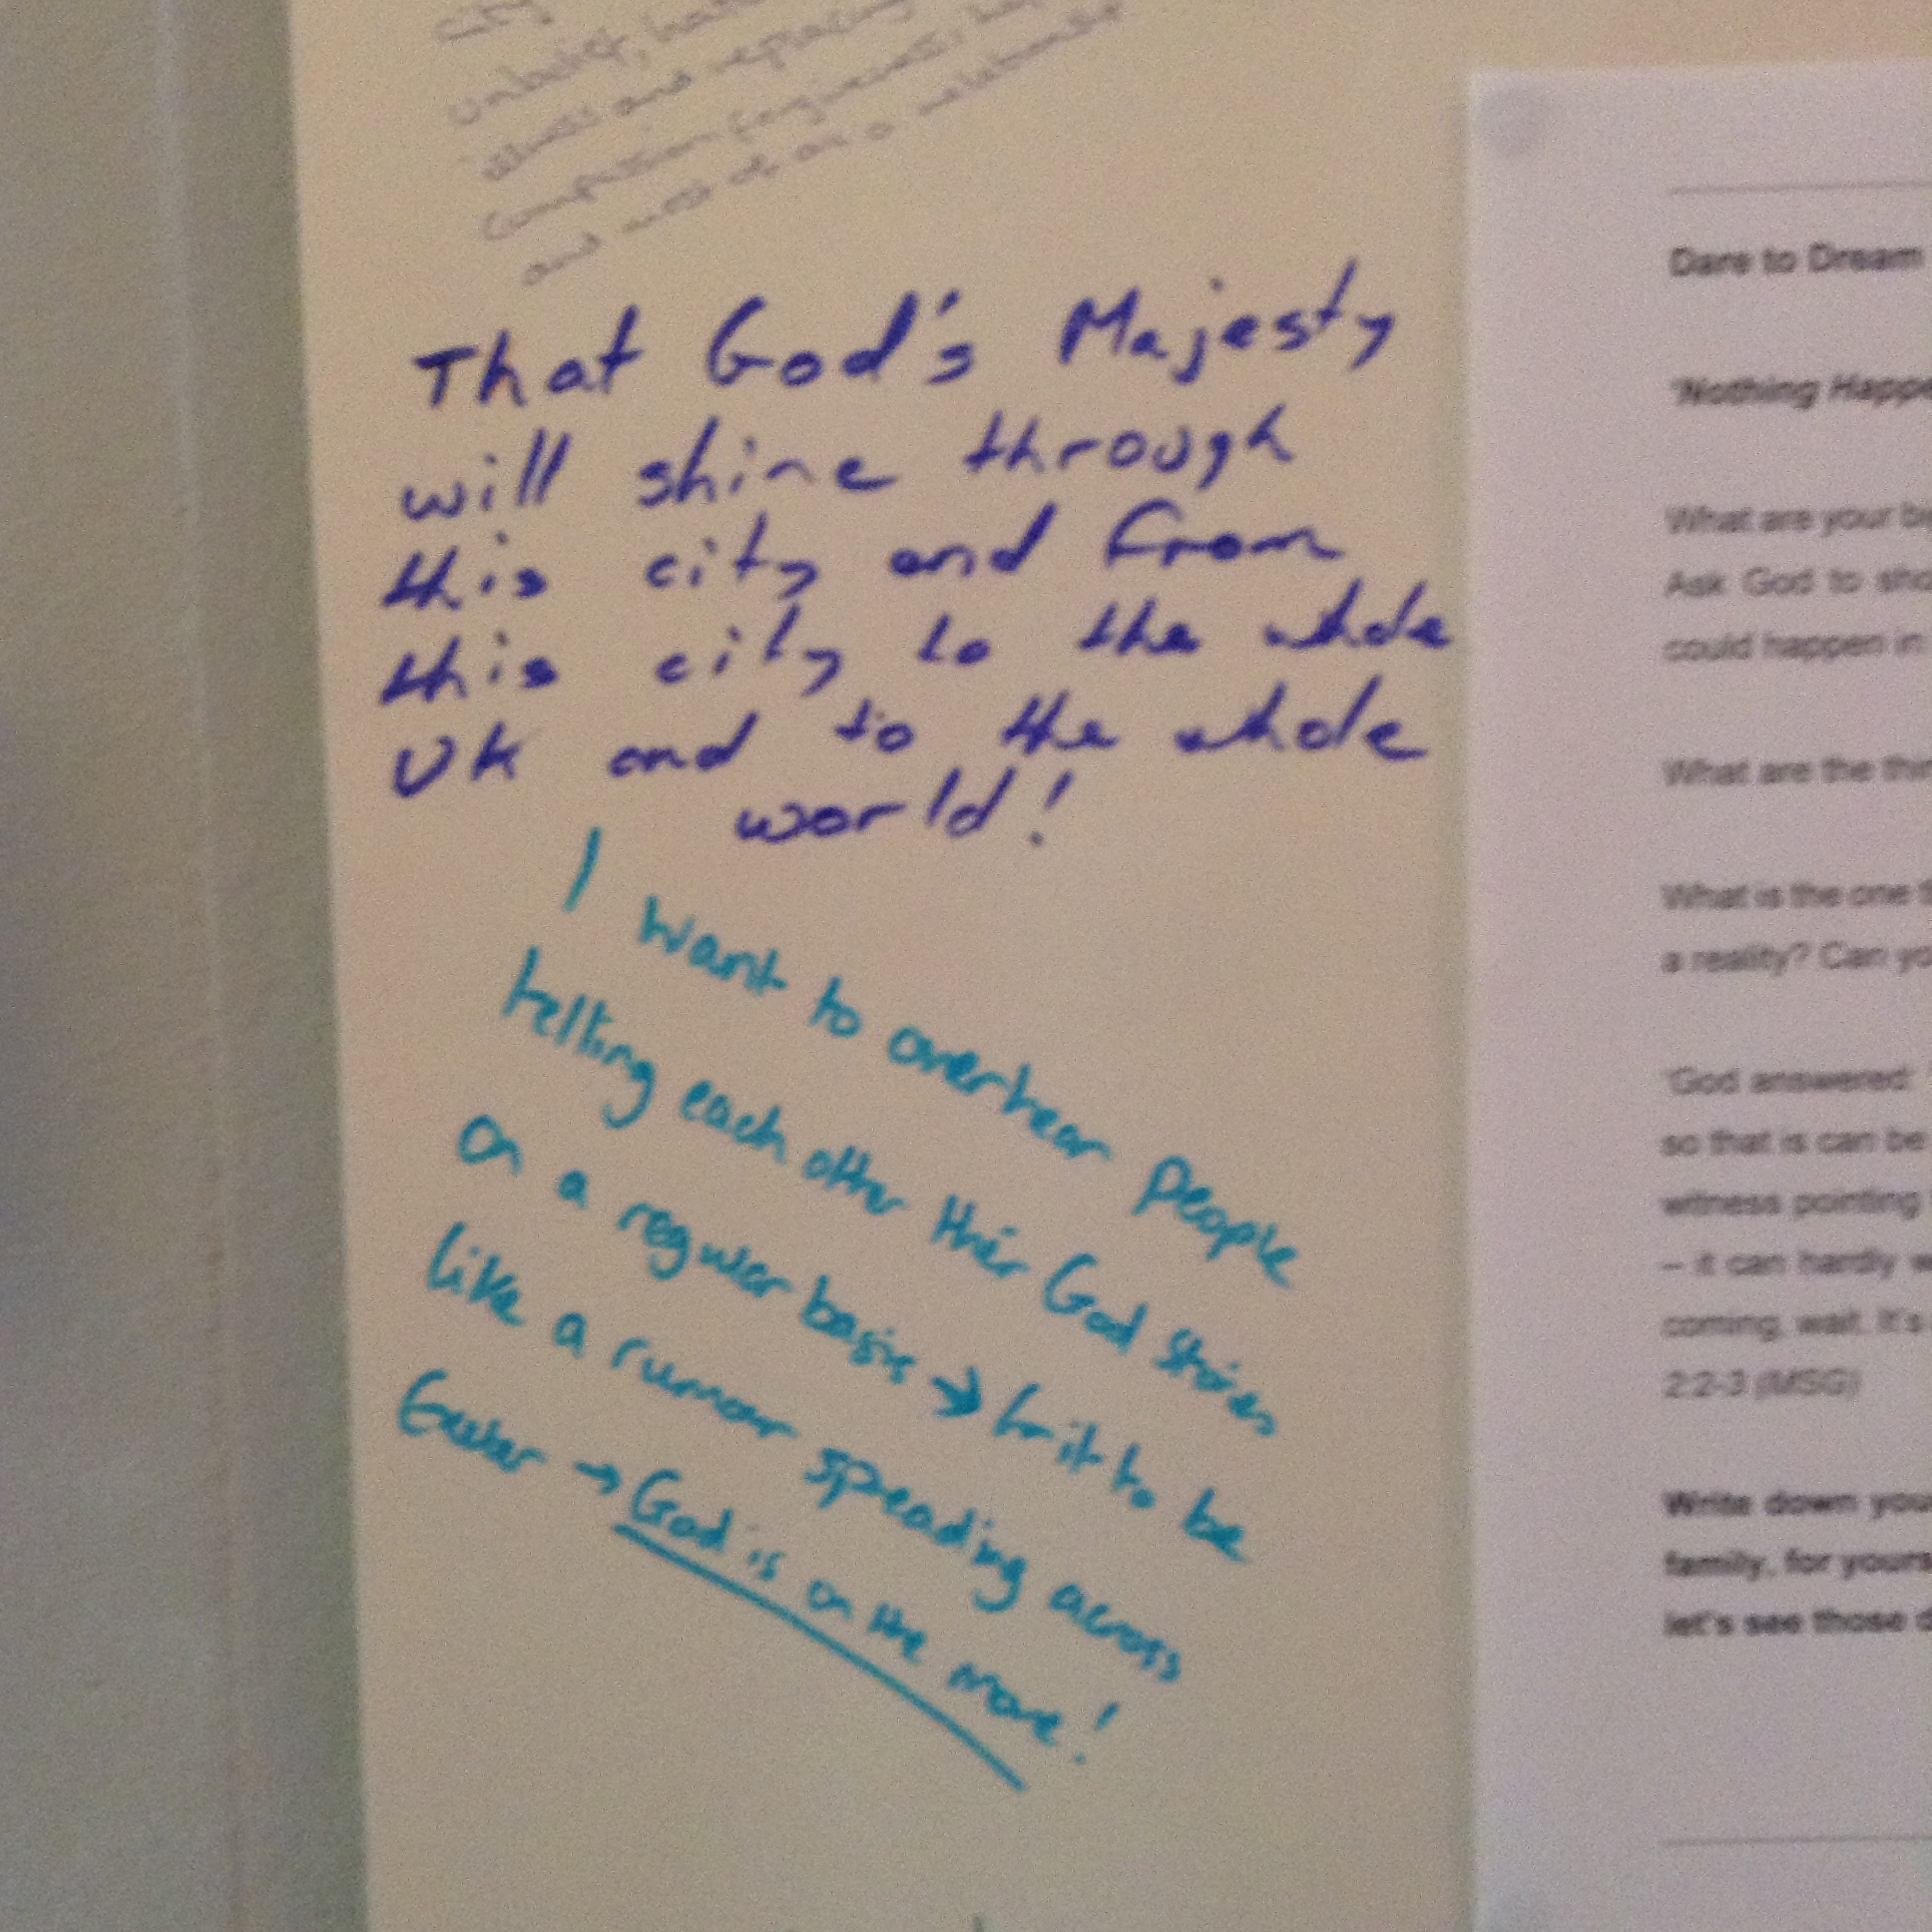 city
unbelief,
illness and replacing
compassion, forgiveness,
and most of all a relationship
That God's Majesty
will shine through
this city and from
this city to the whole
UK and to the whole
world!
I want to overhear people
telling each other their God stories
on a regular basis → for it to be
like a rumour spreading across
Exeter → God is on the move!
Dare to Dream
'Nothing Happe
What are your b
Ask God to sho
could happen in
What are the thin
What is the one t
a reality? Can yo
'God answered:
so that is can be
witness pointing
– it can hardly w
coming, wait. It's
2:2-3 (MSG)
Write down you
family, for yours
let's see those d